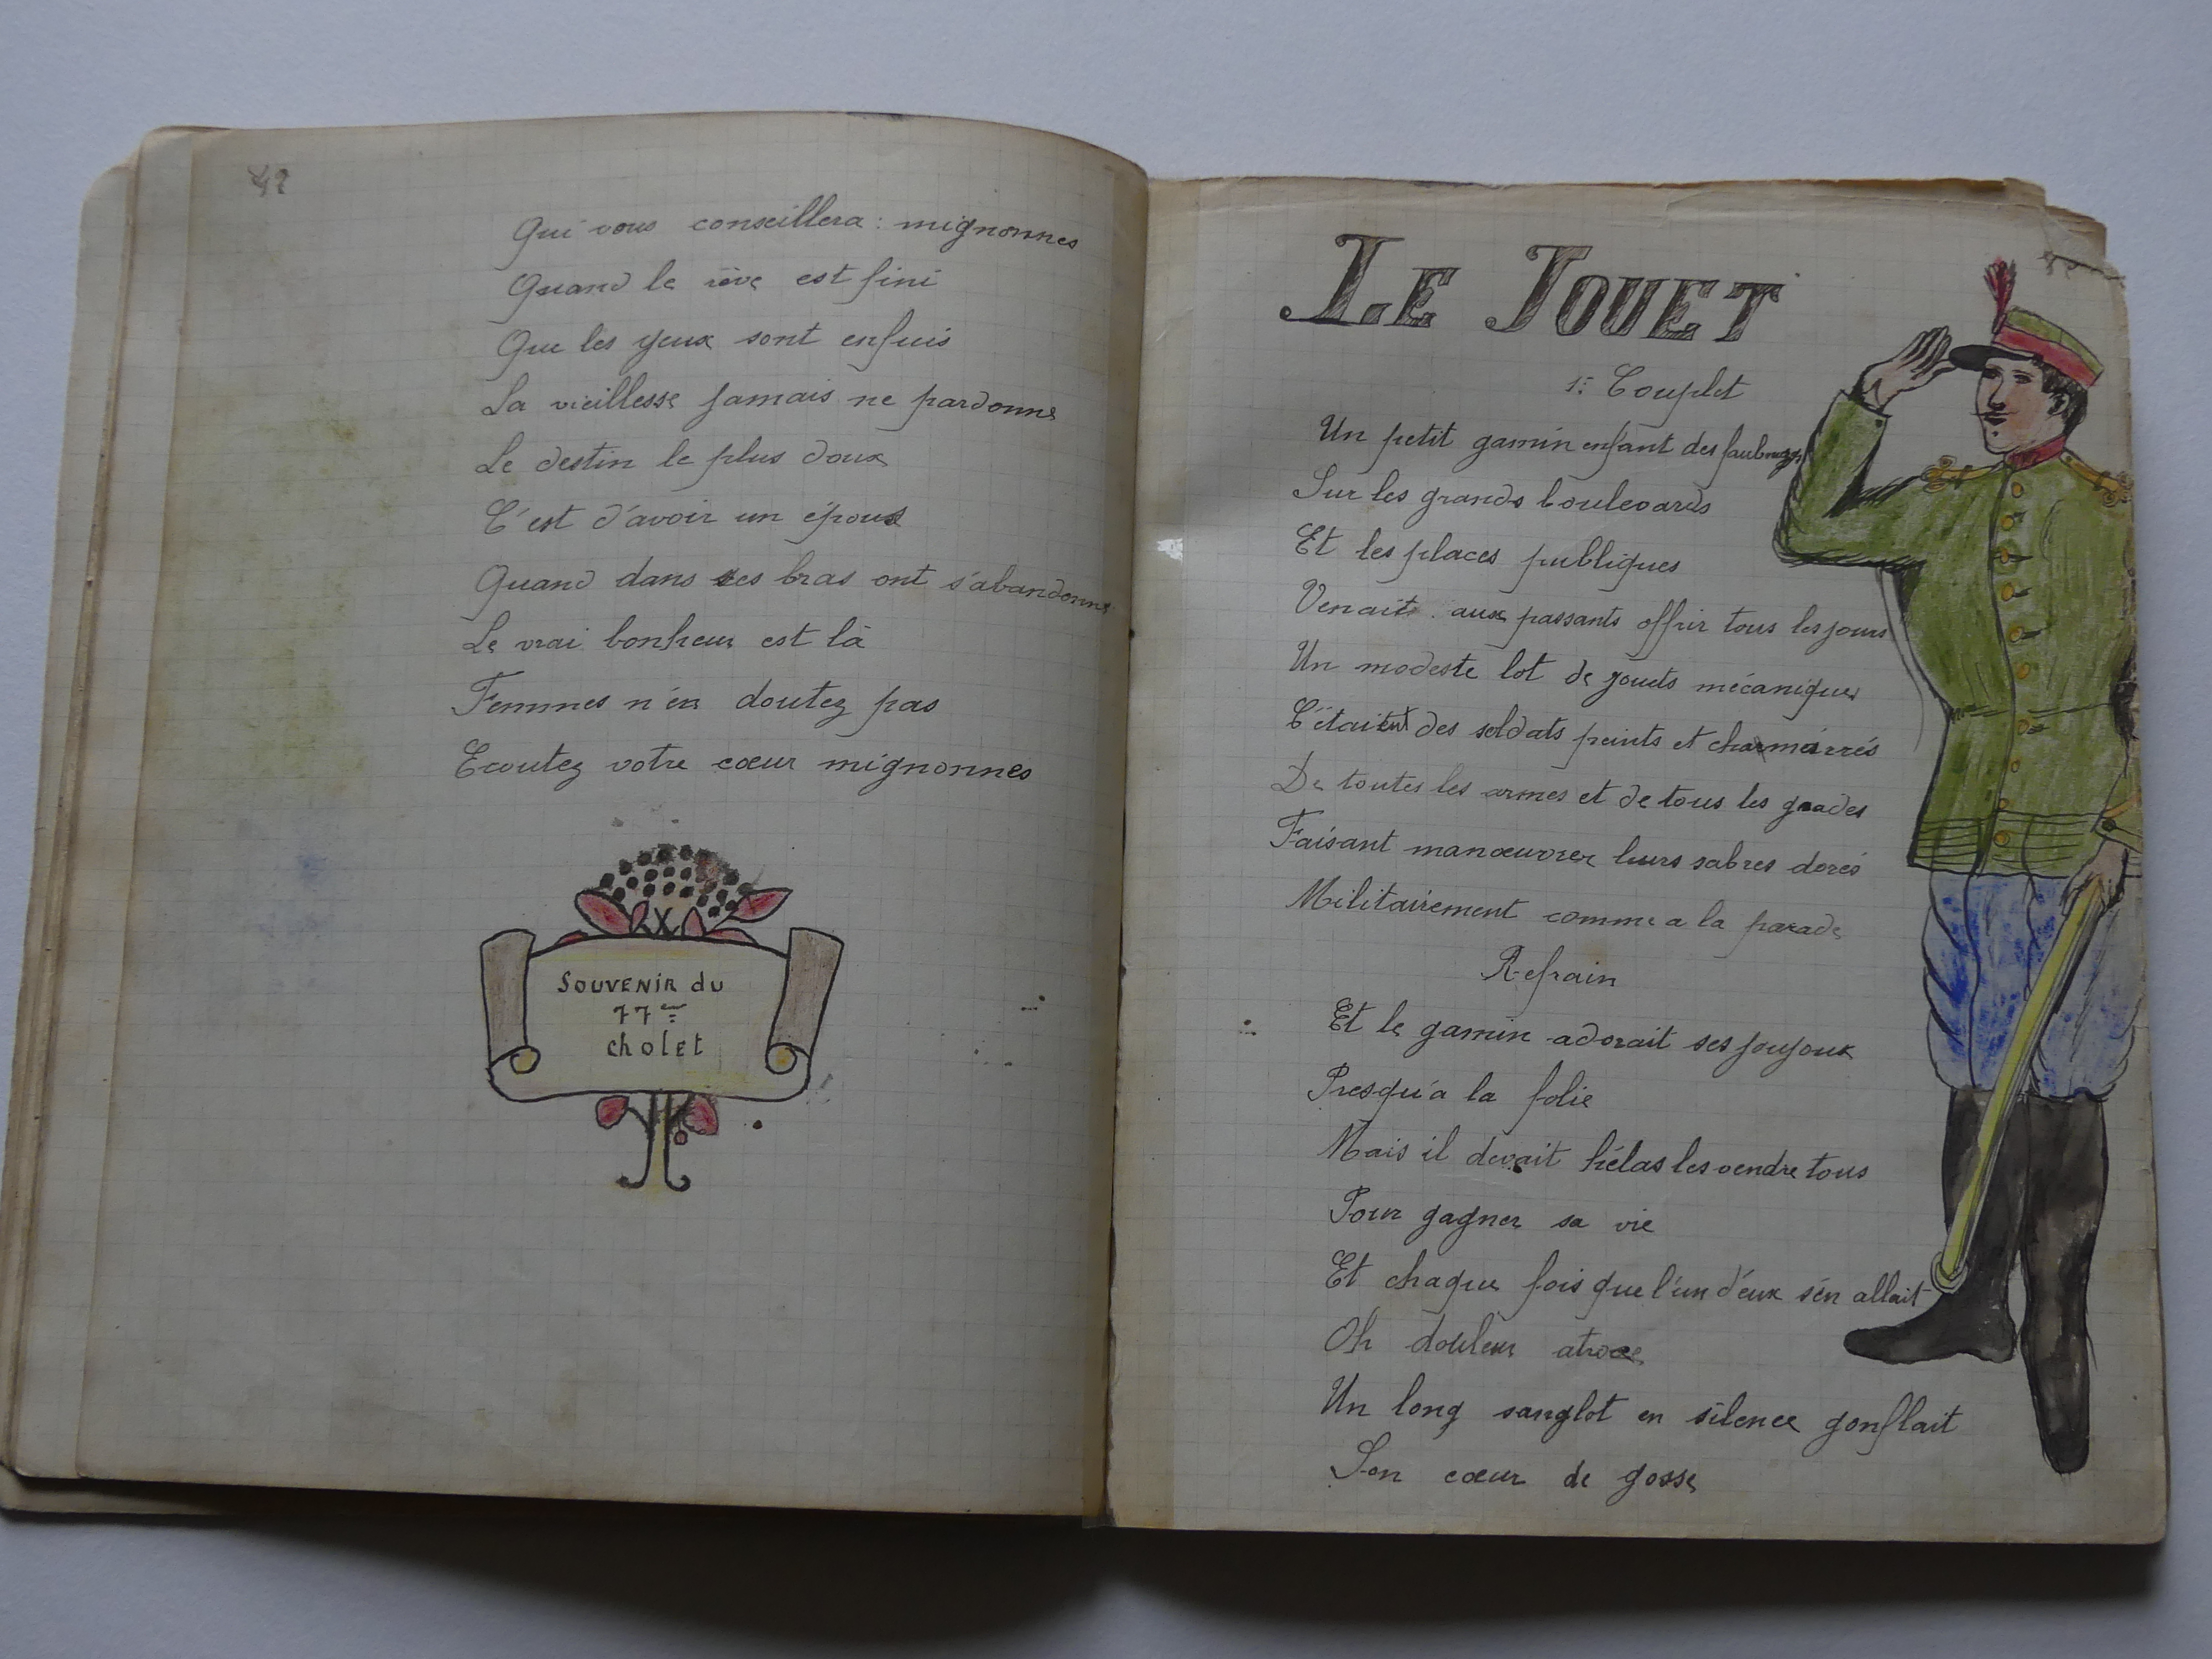 42
Qui vous conseillera : mignonnes
Quand le rêve est fini
Que les yeux sont enfuis
La vieillesse jamais ne pardonne
Le destin le plus doux
C'est d'avoir un époux
Quand dans ses bras ont s'abandonne
Le vrai bonheur est là
Femmes n'en doutez pas
Ecoutez votre cœur mignonnes
SOUVENIR du
77ème
cholet
LE JOUET
1er Couplet
Un petit gamin enfant des faubourgs
Sur les grands boulevards
Et les places publiques
Venait aux passants offrir tous les jours
Un modeste lot de jouets mécaniques
C'étaient des soldats peints et charmarrés
De toutes les armes et de tous les grades
Faisant manœuvrer leurs sabres dorés
Militairement comme a la parade
Refrain
Et le gamin adorait ses joujoux
Presqu'a la folie
Mais il devait hélas les vendre tous
Pour gagner sa vie
Et chaque fois que l'un d'eux s'en allait
Oh douleur atroce
Un long sanglot en silence gonflait
Son cœur de gosse